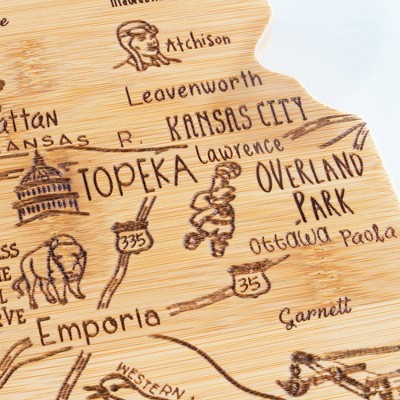 Atchison
Leavenworth
attan
KANSAS R.
KANSAS CITY
Lawrence
TOPEKA
OVERLAND
PARK
335
Ottawa
Paola
35
Emporia
Garnett
WESTERN